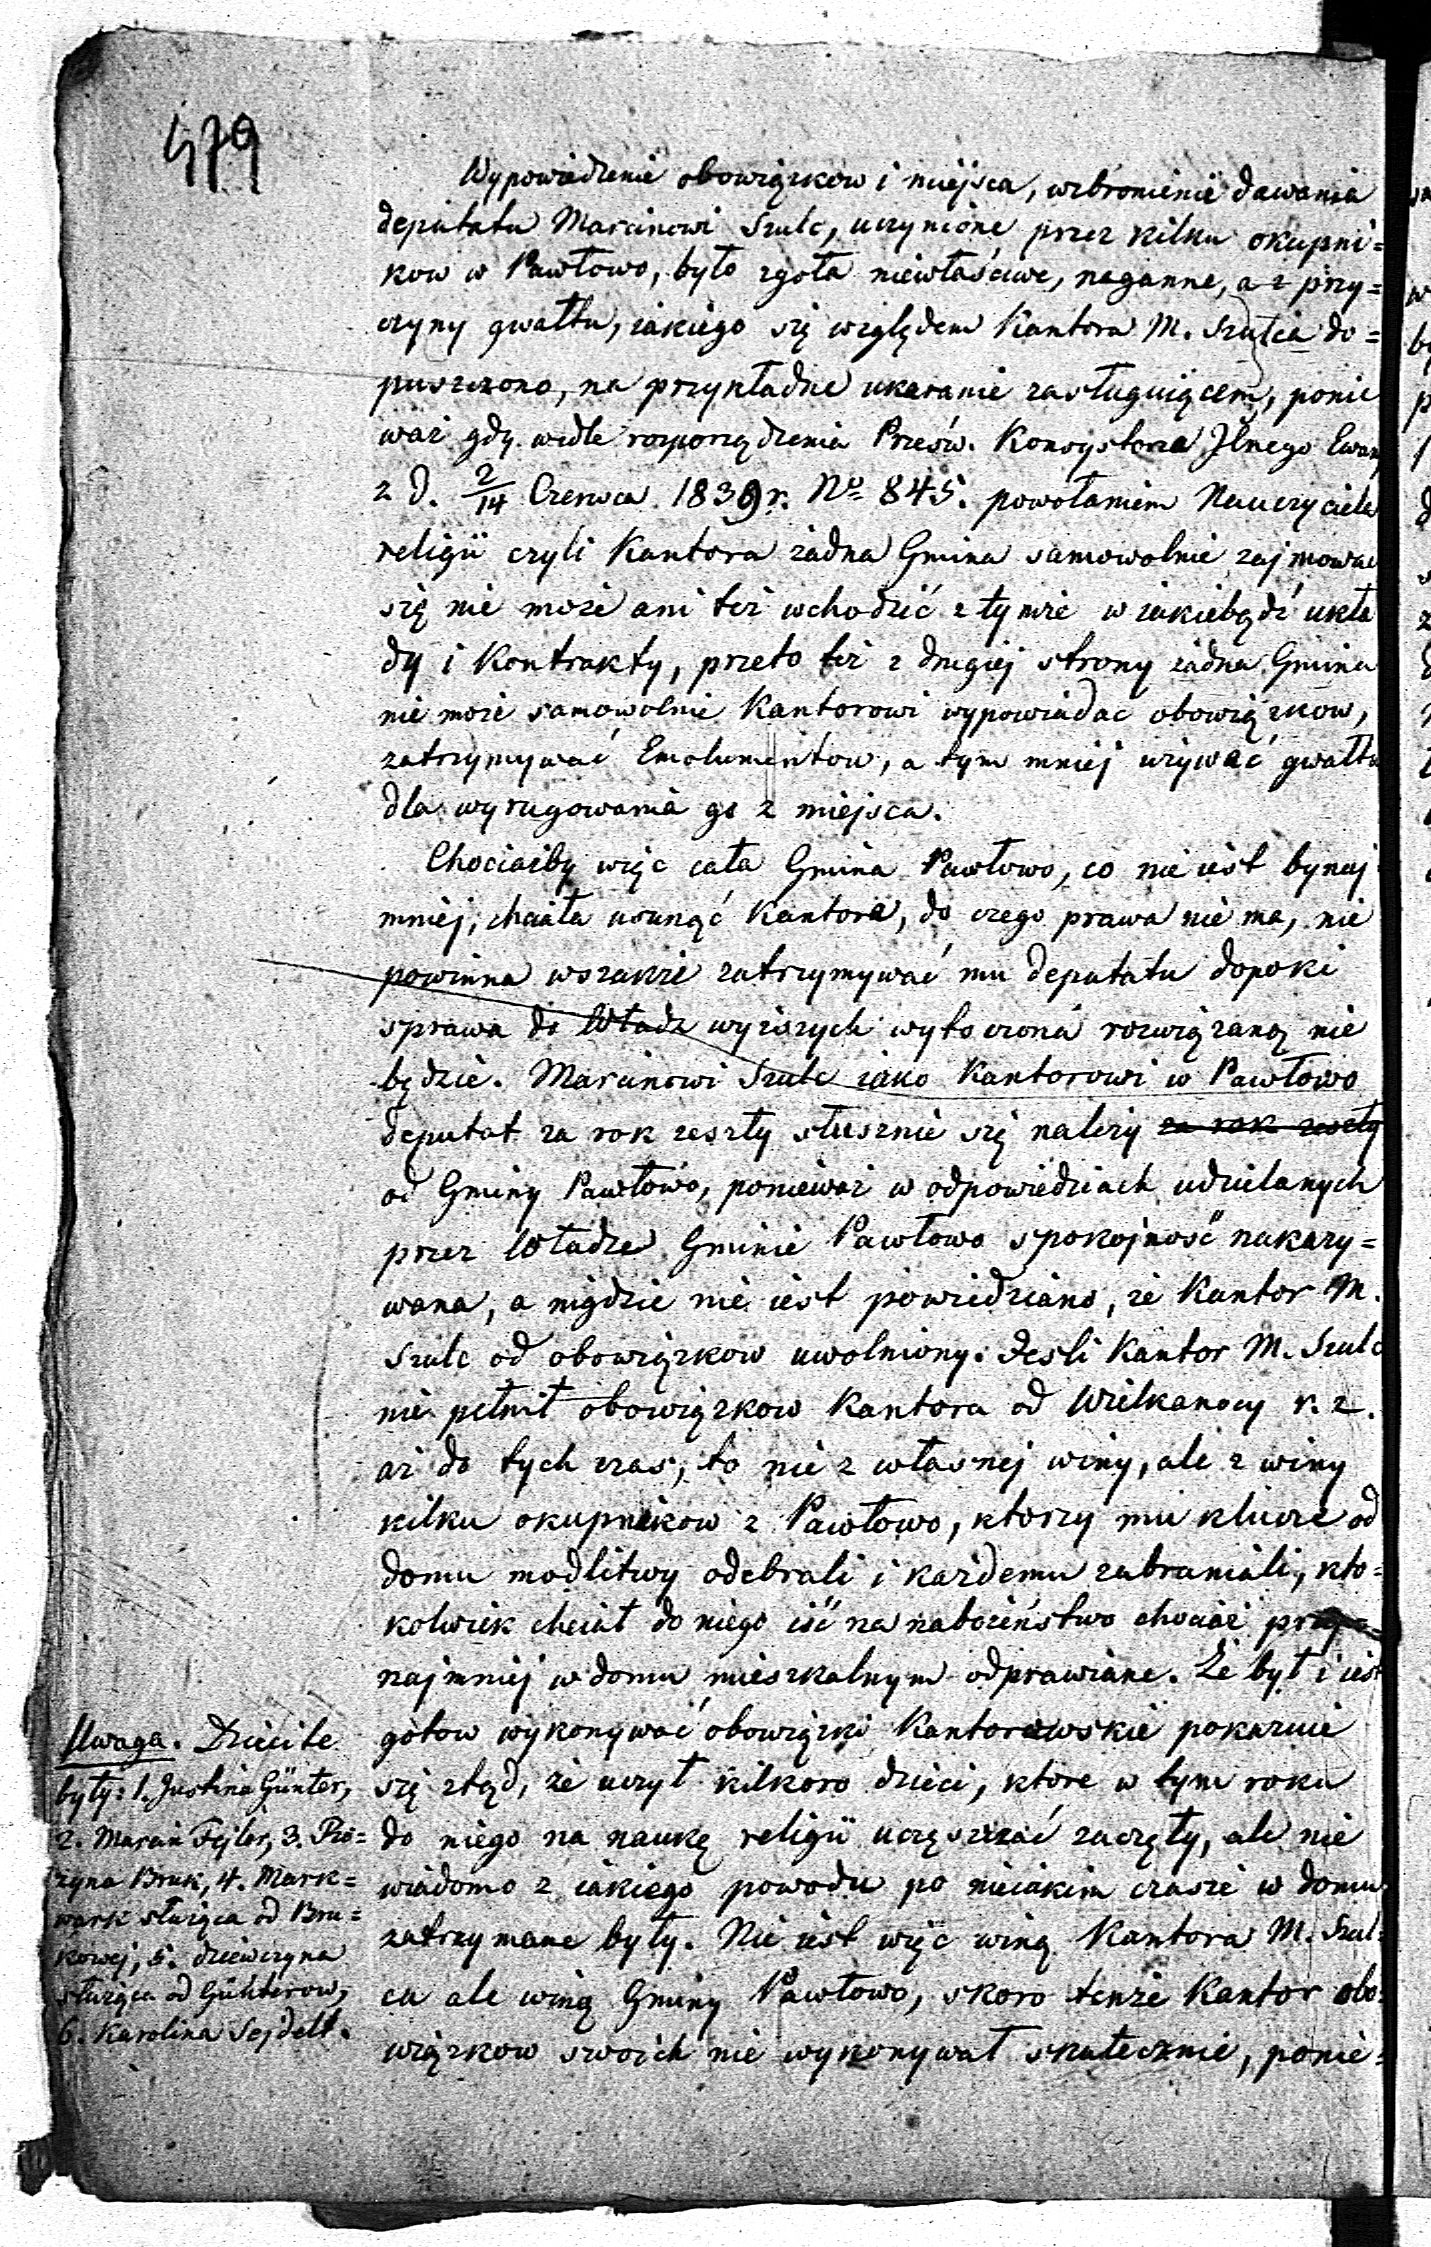 479
Wypowiedzenie obowiązkow i miejsca, wzbronienie dawania
deputatu Marcinowi Szulc, uczynione przez kilku okupni=
kow w Pawłowo, było zgoła niewłaściwe, naganne, a z przy=
czyny gwałtu, iakiego się względem Kantora M. Szulca do=
puszczono, na przykładne ukaranie zasługuiącem, ponie
waż gdy wedle rozporządzenia Prześw. Konsystorza Jlnego Ewang
z d. 2/14 Czerwca 1839 r. No 845. powołaniem Nauczyciela
religii czyli Kantora żadna Gmina samowolnie zajmować
się nie może ani też wchodzić z tymże w iakiebądź ukła
dy i Kontrakty, przeto też z drugiej strony żadna Gmina
nie może samowolnie Kantorowi wypowiadac obowiązkow,
zatrzymywać Emolumentow, a tym mniej używać gwałtu
dla wyrugowania go z miejsca.
Chociażby więc cała Gmina Pawłowo, co nie iest bynaj
mniej, chciała usunąć Kantora, do czego prawa nie ma, nie
powinna wszakże zatrzymywać mu deputatu dopoki
sprawa do Władz wyższych wytoczona rozwiązaną nie
będzie. Marcinowi Szulc iako Kantorowi w Pawłowo
deputat za rok zeszły słusznie się należy za rok zeszły
od Gminy Pawłowo, ponieważ w odpowiedziach udzielanych
przez Władze Gminie Pawłowo spokojność nakazy=
wana, a nigdzie nie iest powiedziano, że Kantor M.
Szulc od obowiązkow uwolniony. Jesli Kantor M. Szulc
nie pełnił obowiązkow Kantora od Wielkanocy r. z.
aż do tych czas, to nie z własnej winy, ale z winy
kilku okupnikow z Pawłowo, ktorzy mu klucze od
domu modlitwy odebrali i każdemu zabraniali, kto=
kolwiek chciał do niego iść na nabożeństwo chociaż przy=
najmniej w domu mieszkalnym odprawiane. Że był i iest
gotow wykonywać obowiązki Kantorowskie pokazuie
się ztąd, że uczył kilkoro dzieci, ktore w tym roku
do niego na naukę religii uczęszczać zaczęły, ale nie
wiadomo z iakiego powodu po nieiakim czasie w domu
zatrzymane były. Nie iest więc winą Kantora M. Szul=
ca ale winą Gminy Pawłowo, skoro tenże Kantor obo=
wiązkow swoich nie wykonywał skutecznie, ponie=
Uwaga. Dzieci te
były: 1. Justina Günter,
2. Marcin Fejler, 3.
Bruk, 4. Mark=
wark służąca od Bru=
kowej, 5. dziewczyna
służąca od Günterow,
6. Karolina Sejdelt.